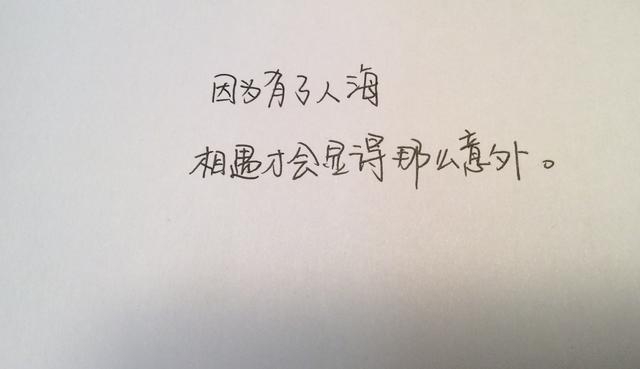 因为有了人海
相遇才会显得那么意外。